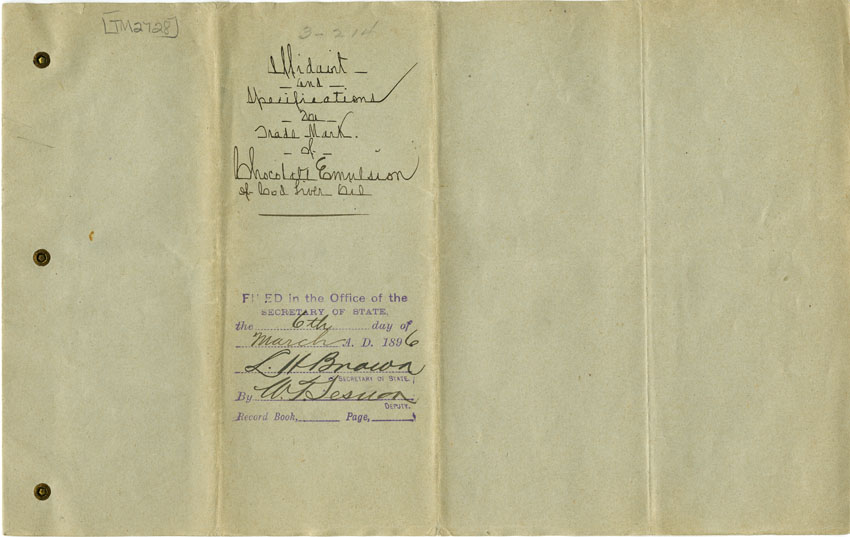 [TM2728]
3-214
Affidavit
- and -
Specifications
- for -
Trade Mark.
- of -
Chocolate Emulsion
of Cod Liver Oil
FILED in the Office of the
SECRETARY OF STATE,
the 6th day of
March A. D. 1896
L. H. Brown
SECRETARY OF STATE.
By W. T.
DEPUTY.
Record Book, Page,